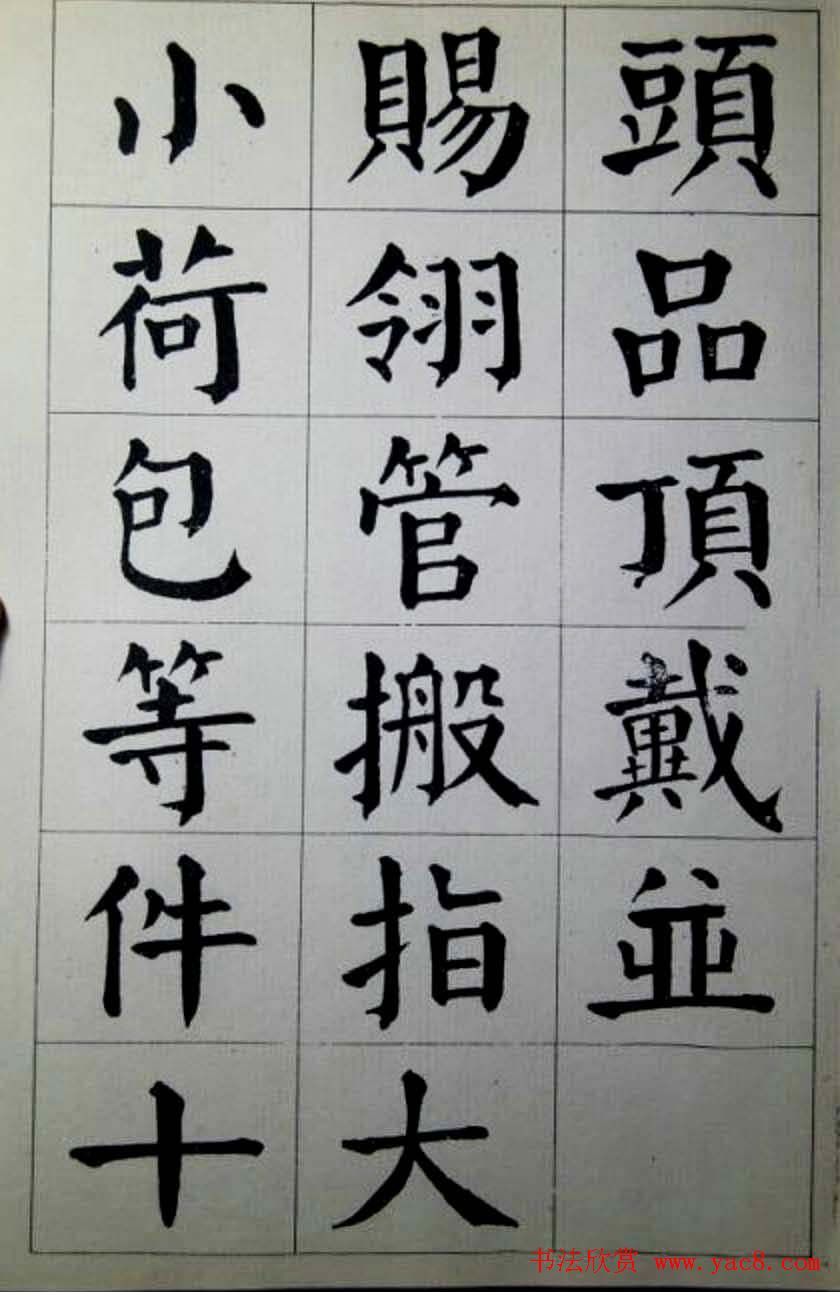 頭品頂戴並
賜翎管搬指大
小荷包等件十
书法欣赏 www.yac8.com